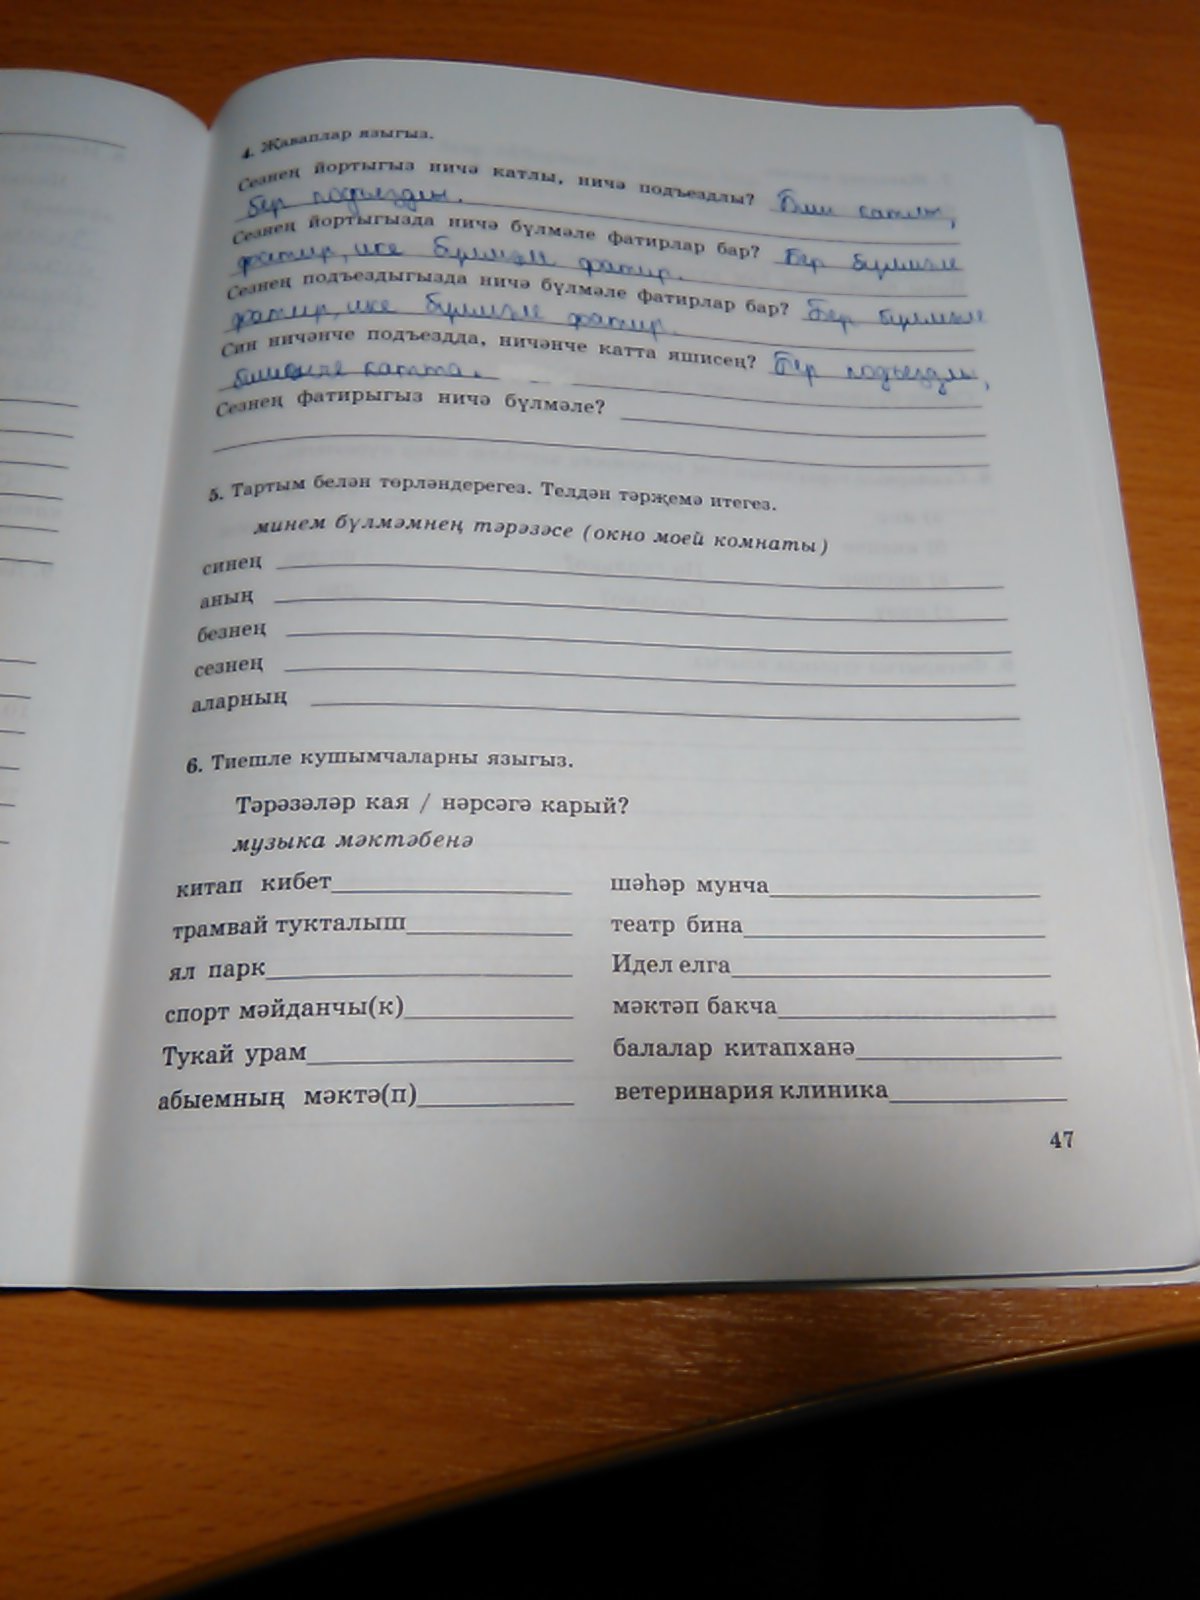 4. Җаваплар языгыз.
Сезнең йортыгыз ничә катлы, ничә подъездлы? Биш катлы,
бер подъездлы.
Сезнең йортыгызда ничә бүлмәле фатирлар бар? Бер бүлмәле
фатир, ике бүлмәле фатир.
Сезнең подъездыгызда ничә бүлмәле фатирлар бар? Бер бүлмәле
фатир, ике бүлмәле фатир.
Син ничәнче подъездда, ничәнче катта яшисең? Бер подъездлы,
бишенче катта.
Сезнең фатирыгыз ничә бүлмәле?
5. Тартым белән төрләндерегез. Телдән тәрҗемә итегез.
минем бүлмәмнең тәрәзәсе (окно моей комнаты)
синең
аның
безнең
сезнең
аларның
6. Тиешле кушымчаларны языгыз.
Тәрәзәләр кая / нәрсәгә карый?
музыка мәктәбенә
китап кибет шәһәр мунча
трамвай тукталыш театр бина
ял парк Идел елга
спорт мәйданчы(к) мәктәп бакча
Тукай урам балалар китапханә
абыемның мәктә(п) ветеринария клиника
47